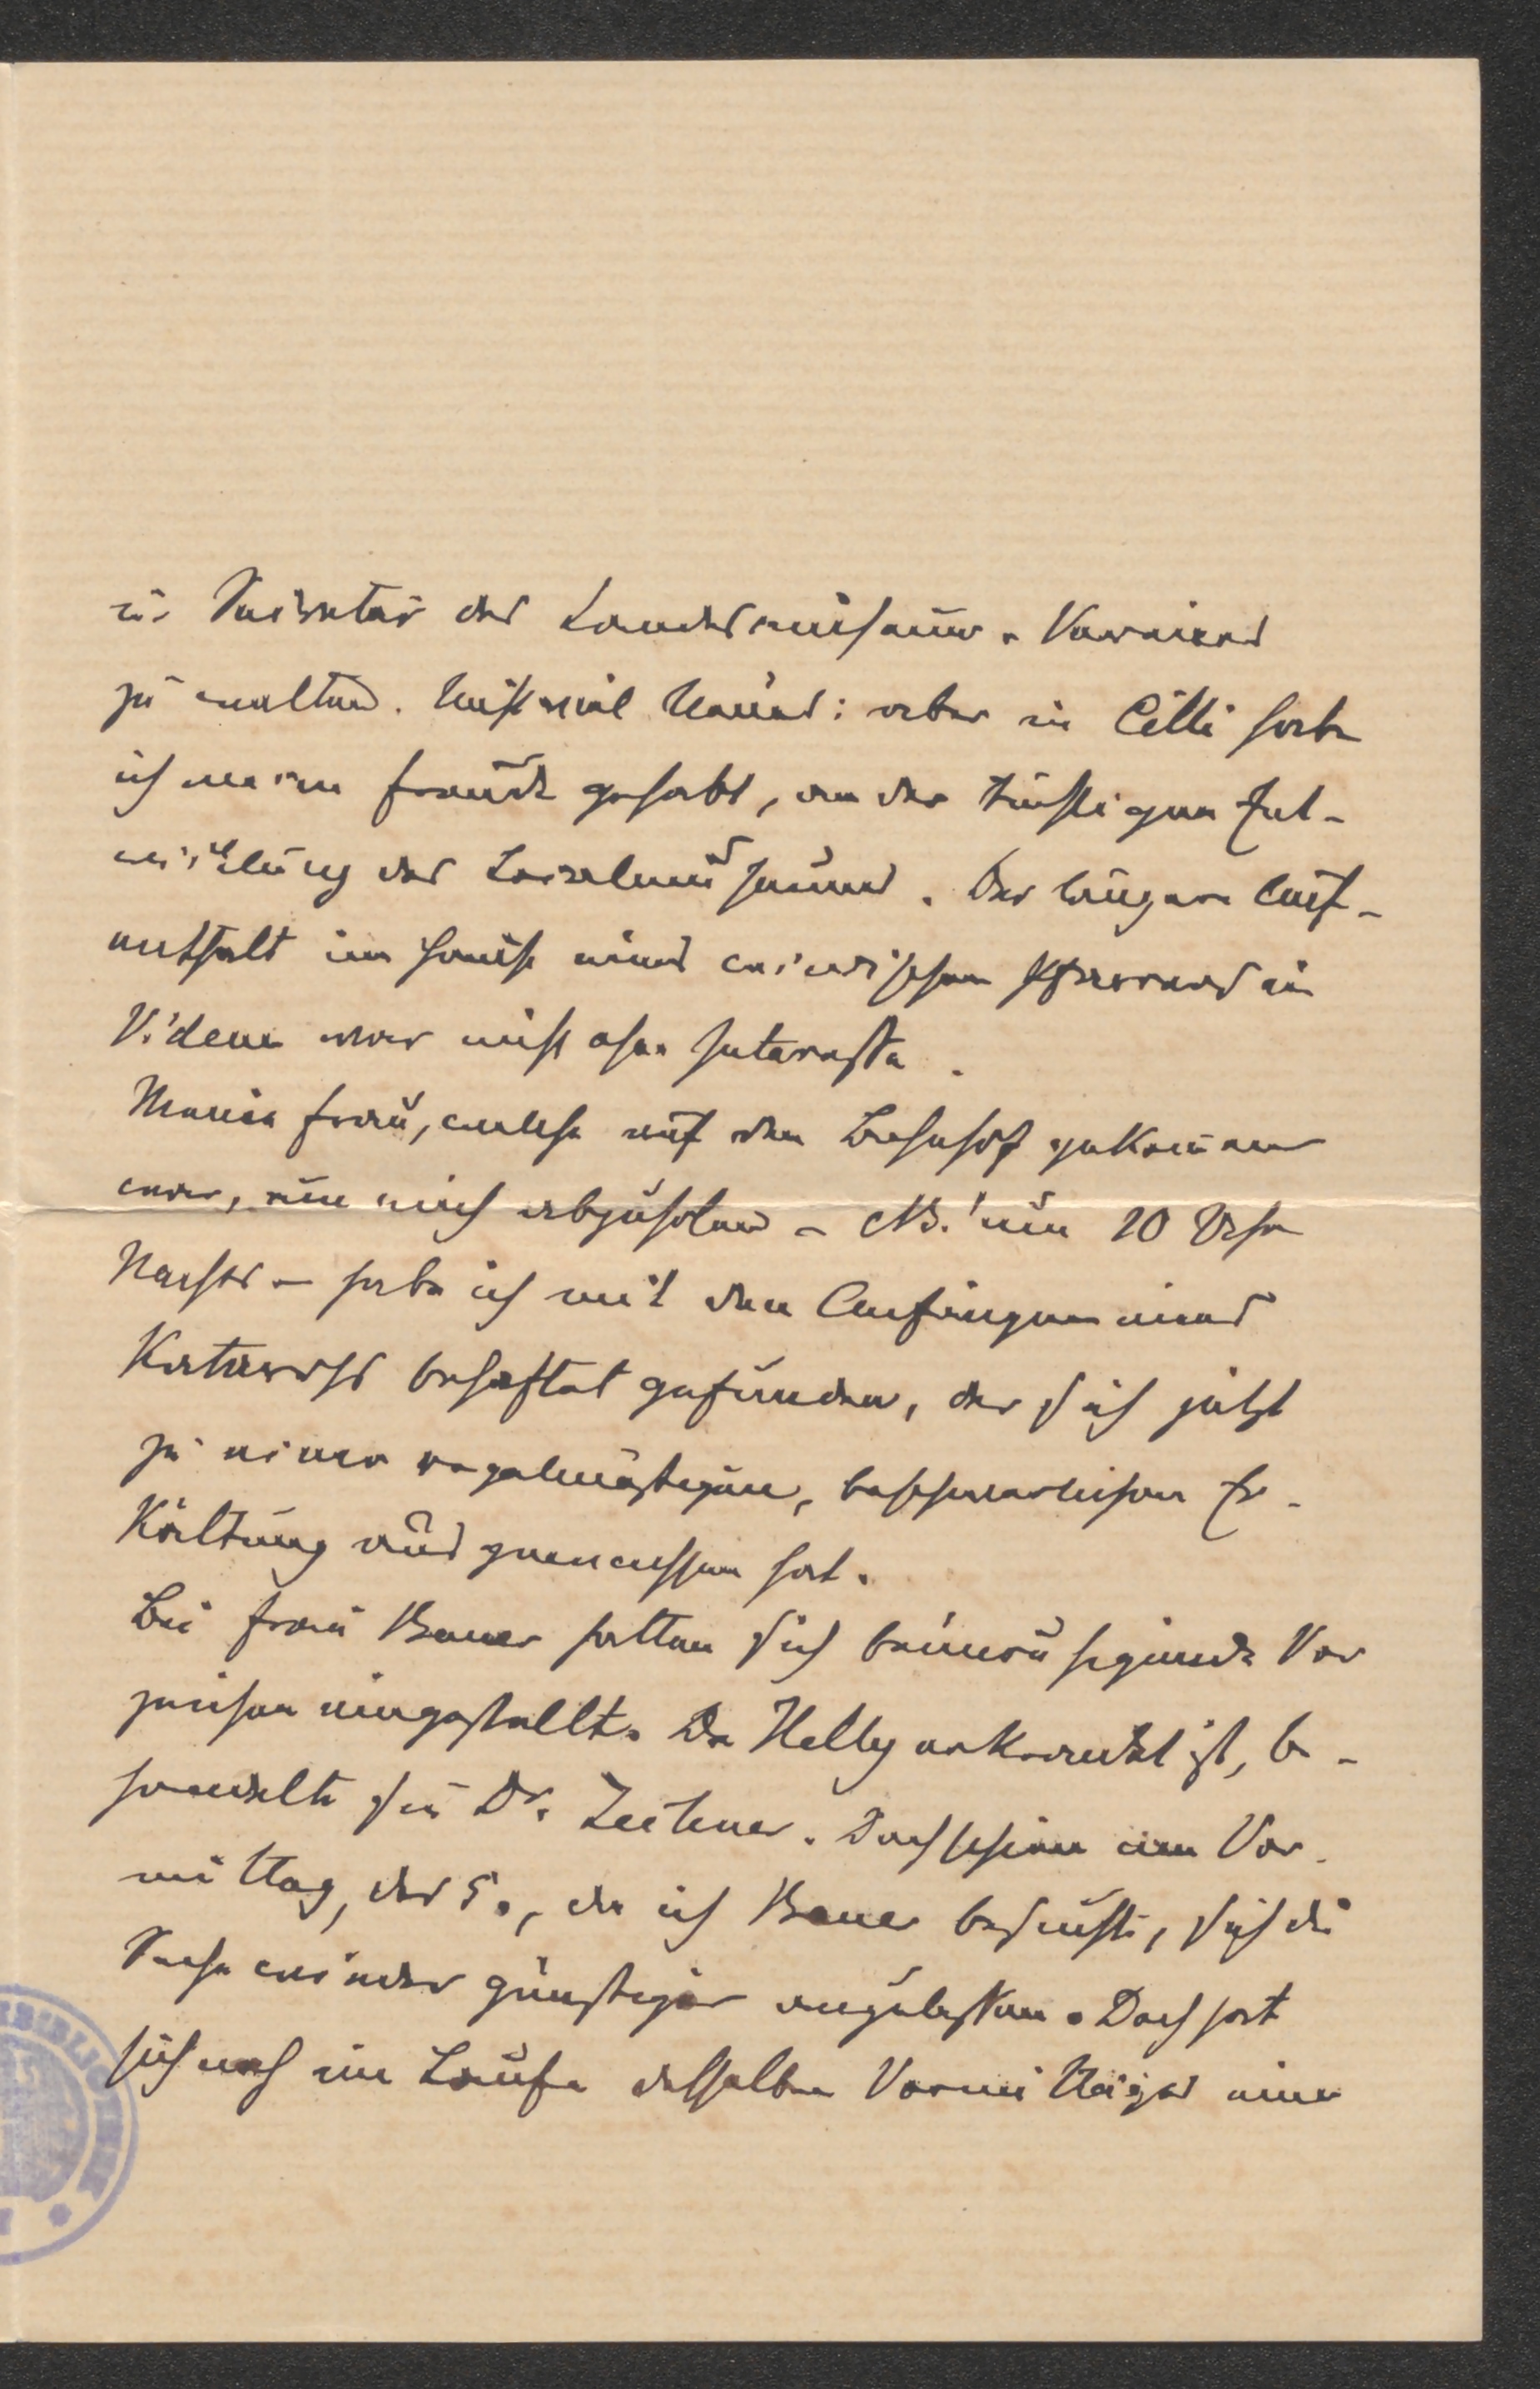 als Secretär des Landesmuseum-Vereines
zu walten. Nicht viel Neues: aber in Cilli habe
ich meine Freude gehabt, an der tüchtigen Ent-
wicklung des Localmuseums. Der längere Auf-
enthalt im Hause eines windischen Pfarrers in
Videm war nicht ohne Interesse.
Meine Frau, welche auf den Bahnhof gekommen
war, um mich abzuholen – NB.! um 10 Uhr
Nachts – habe ich mit den Anfängen eines
Katarrhs behaftet gefunden, der sich jetzt
zu einer regelmäßigen, beschwerlichen Er-
kältung ausgewachsen hat.
Bei Frau Bauer hatten sich beunruhigende Vor
zeichen eingestellt. Da Helly erkrankt ist, be-
handelte sie Dr. Zechner. Doch schien am Vor-
mittag, des 5., da ich Bauer besuchte, sich die
Sache wieder günstiger anzulassen. Doch hat
sich noch im Laufe desselben Vormittages eine